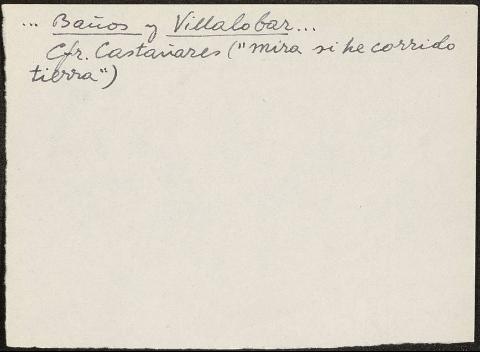 ... Baños y Villalobar...
Cfr. Castañares ("mira si he corrido
tierra")